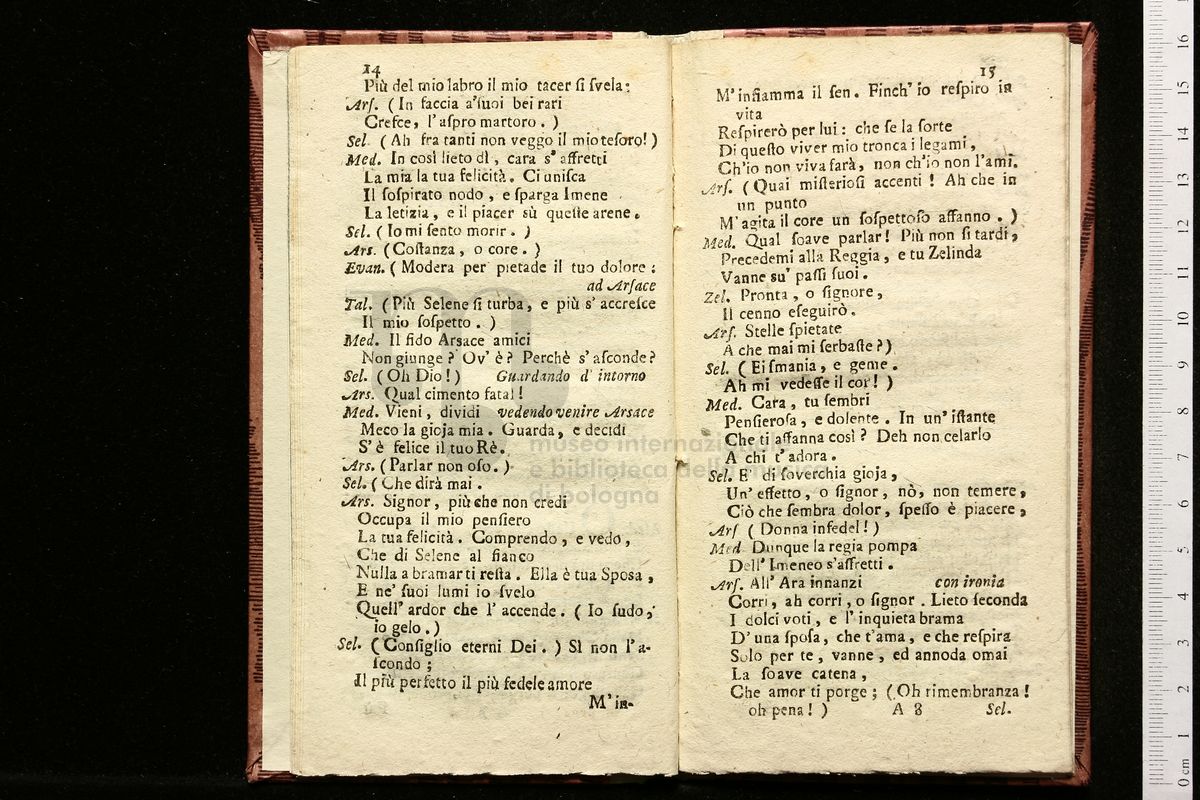 14
Più del mio labro il mio tacer ſi ſvela:
Arſ. (In faccia a'ſuoi bei rari
Creſce, l'aſpro martoro.)
Sel. (Ah fra tanti non veggo il mio teſoro!)
Med. In così lieto dì, cara s'affretti
La mia la tua felicità. Ci uniſca
Il ſoſpirato nodo, e ſparga Imene
La letizia, e il piacer sù queſte arene.
Sel. (Io mi ſento morir.)
Ars. (Coſtanza, o core.)
Evan. (Modera per pietade il tuo dolore:
ad Arſace
Tal. (Più Selene ſi turba, e più s'accreſce
Il mio ſoſpetto.)
Med. Il fido Arsace amici
Non giunge? Ov'è? Perchè s'aſconde?
Sel. (Oh Dio!) Guardando d'intorno
Ars. Qual cimento fatal!
Med. Vieni, dividi vedendo venire Arsace
Meco la gioja mia. Guarda, e decidi
S'è felice il tuo Rè.
Ars. (Parlar non oſo.)
Sel. (Che dirà mai.
Ars. Signor, più che non credi
Occupa il mio penſiero
La tua felicità. Comprendo, e vedo,
Che di Selene al fianco
Nulla a bramar ti reſta. Ella è tua Sposa,
E ne' ſuoi lumi io ſvelo
Quell' ardor che l'accende. (Io ſudo,
io gelo.)
Sel. (Conſiglio eterni Dei.) Sì non l'a-
ſcondo;
Il più perfetto il più fedele amore
M'in-
15
M'infiamma il ſen. Finch' io reſpiro in
vita
Reſpirerò per lui: che ſe la ſorte
Di queſto viver mio tronca i legami,
Ch'io non viva ſarà, non ch'io non l'ami.
Arſ. (Quai miſterioſi accenti! Ah che in
un punto
M'agita il core un ſoſpettoſo affanno.)
Med. Qual ſoave parlar! Più non ſi tardi,
Precedemi alla Reggia, e tu Zelinda
Vanne su' paſſi ſuoi.
Zel. Pronta, o ſignore,
Il cenno eſeguirò.
Arſ. Stelle ſpietate
A che mai mi ſerbaſte?)
Sel. (Ei ſmania, e geme.
Ah mi vedeſſe il cor!)
Med. Cara, tu ſembri
Penſieroſa, e dolente. In un' iſtante
Che ti affanna così? Deh non celarlo
A chi t'adora.
Sel. E' di ſoverchia gioja,
Un' effetto, o ſignor, nò, non temere,
Ciò che ſembra dolor, ſpeſſo è piacere,
Arſ (Donna infedel!)
Med Dunque la regia pompa
Dell' Imeneo s'affretti.
Arſ. All' Ara innanzi con ironia
Corri, ah corri, o ſignor. Lieto ſeconda
I dolci voti, e l'inquieta brama
D'una ſpoſa, che t'ama, e che reſpira
Solo per te, vanne, ed annoda omai
La ſoave catena,
Che amor ti porge; (Oh rimembranza!
oh pena!) A 8 Sel.
museo internazionale
e biblioteca della musica
di bologna
0 cm 1 2 3 4 5 6 7 8 9 10 11 12 13 14 15 16